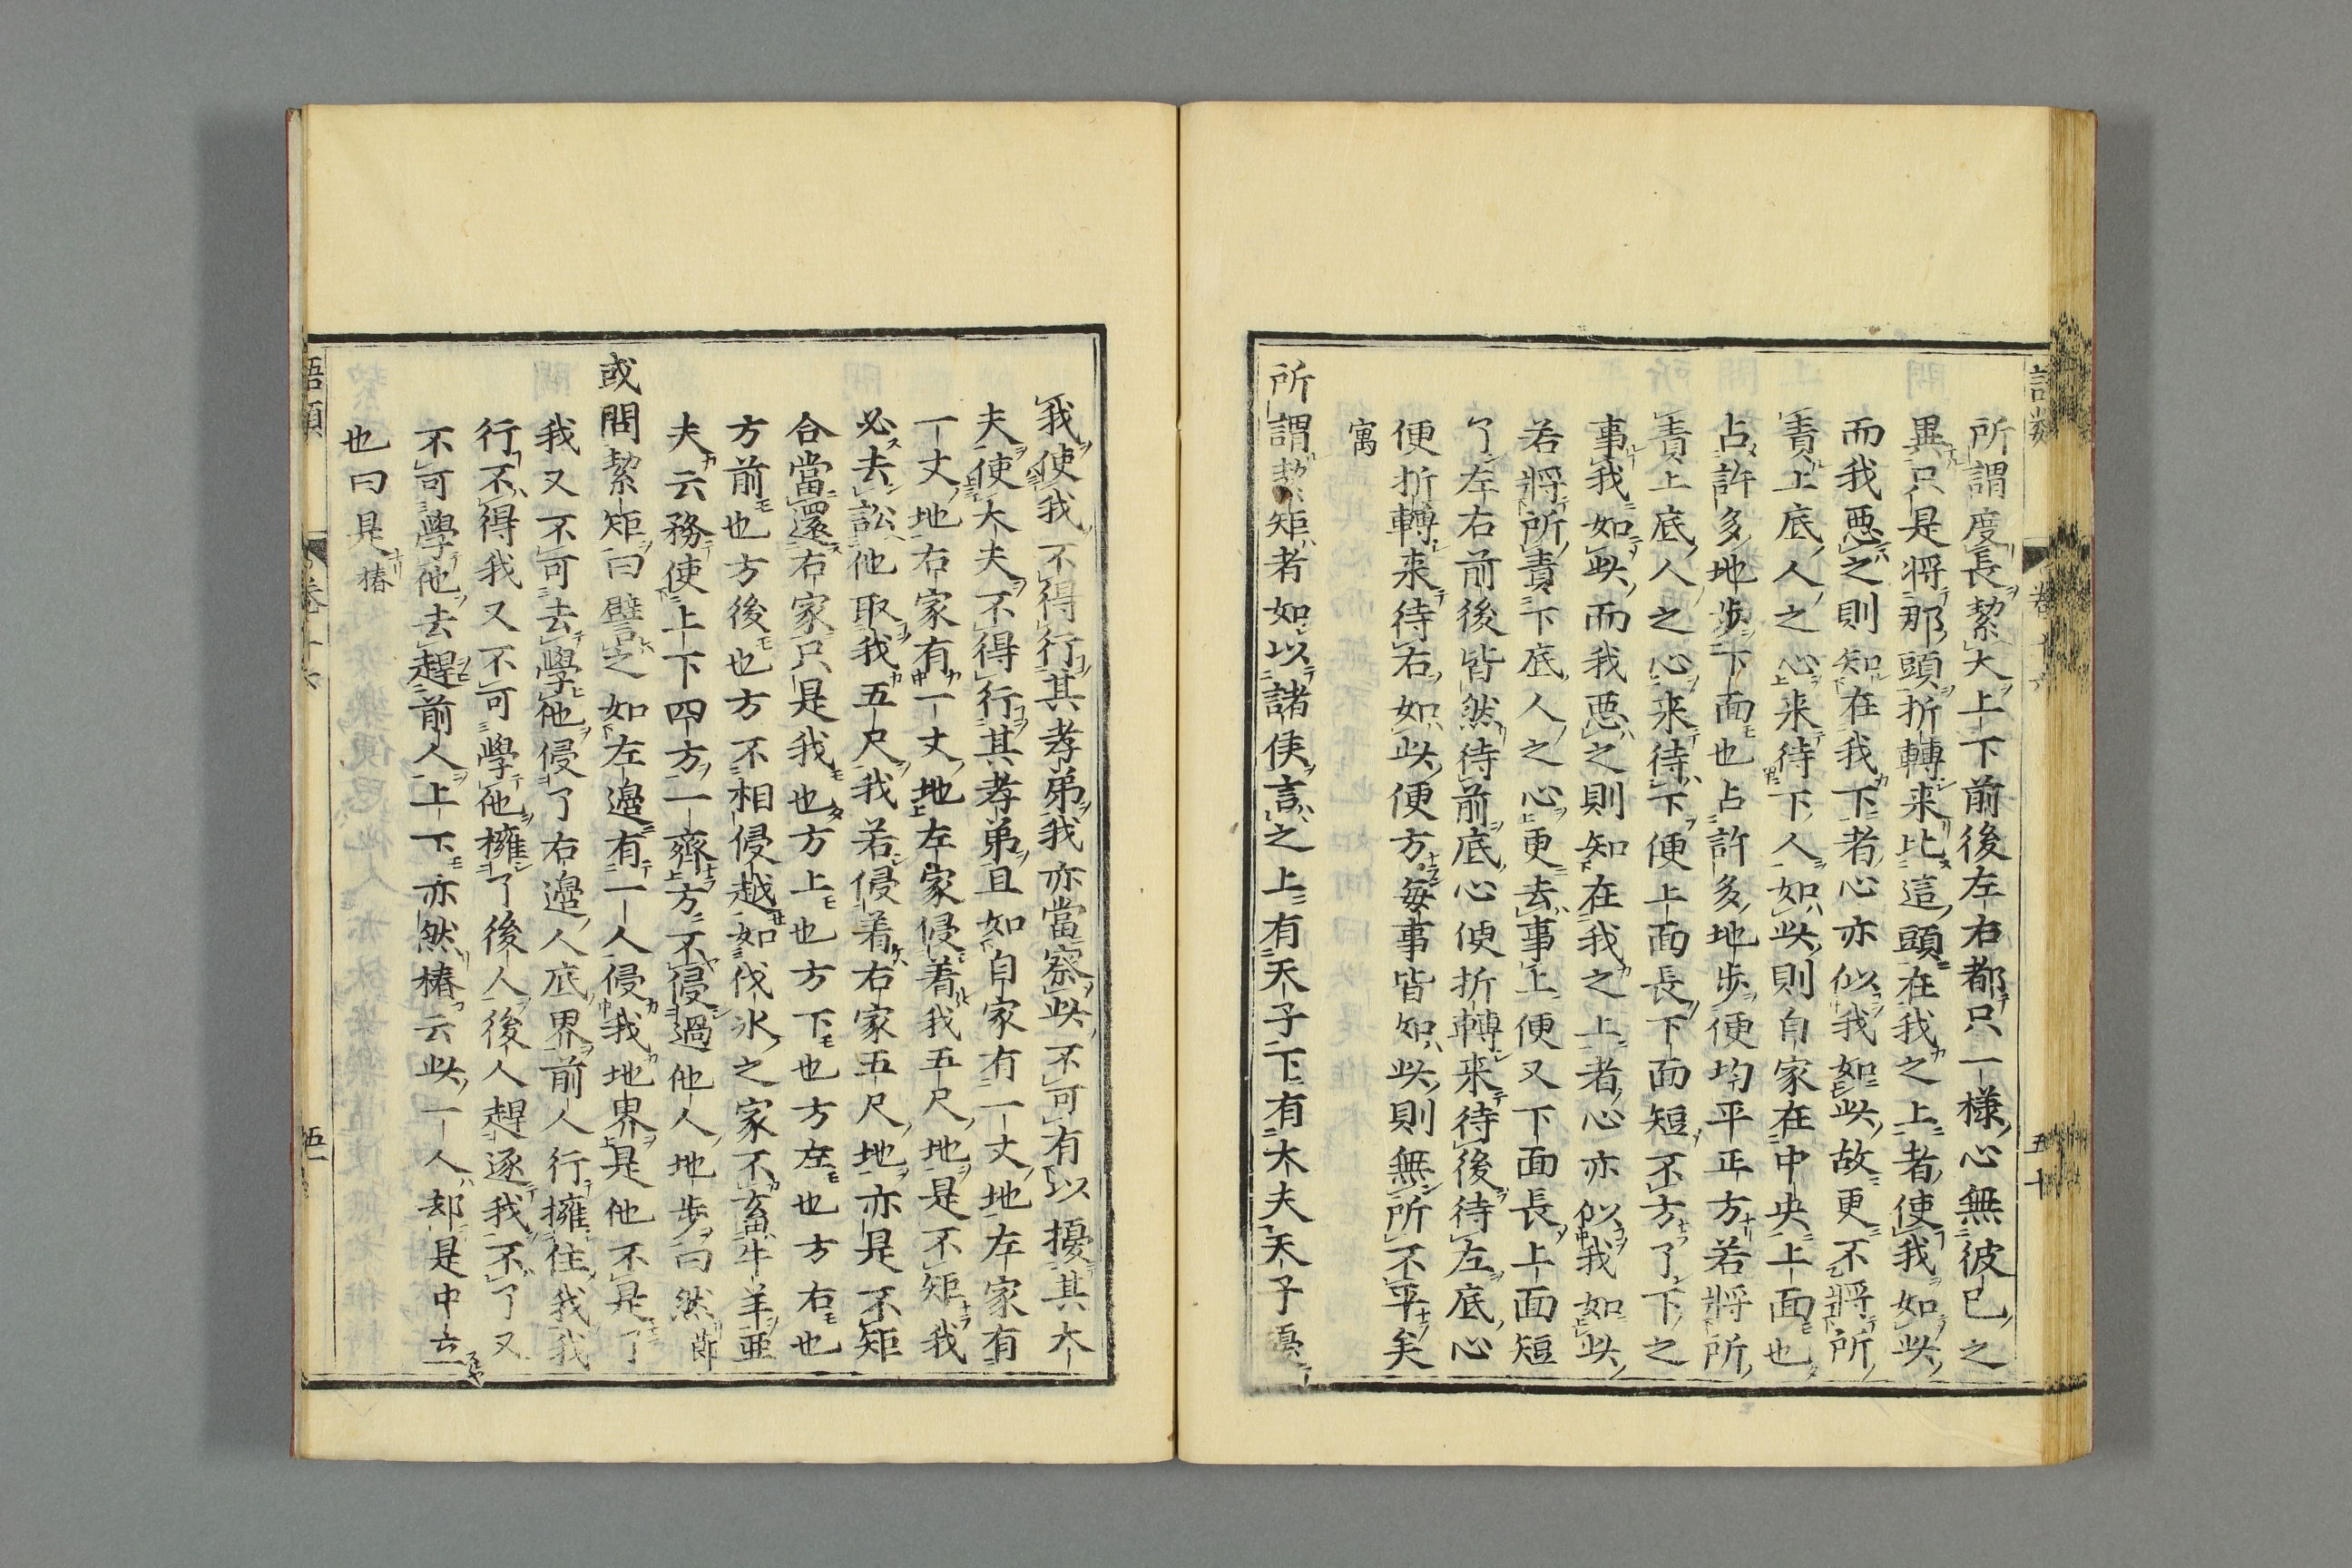 語類
卷十六
五十
所謂度長絜大上下前後左右都只一樣心無彼己之
異只是將那頭折轉来比這頭在我之上者使我如此
而我惡之則知在我下者心亦似我如此故更不將所
責上底人之心来待下人如此則自家在中央上面也
占許多地步下面也占許多地步便均平正方若將所
責上底人之心来待下便上面長下面短不方了下之
事我如此而我惡之則知在我之上者心亦似我如此
若將所責下底人之心更去事上便又下面長上面短
了左右前後皆然待前底心便折轉来待後待左底心
便折轉来待右如此便方每事皆如此則無所不平矣
寓
所謂絜矩者如以諸侯言之上有天子下有大夫天子擾
我使我不得行其孝弟我亦當察此不可有以擾其大
夫使大夫不得行其孝弟且如自家有一丈地左家有
一丈地右家有一丈地左家侵着我五尺地是不矩我
必去訟他取我五尺我若侵着右家五尺地亦是不矩
合當還右家只是我也方上也方下也方左也方右也
方前也方後也方不相侵越如伐氷之家不畜牛羊亜
夫云務使上下四方一齊方不侵過他人地步曰然 節
或問絜矩曰譬之如左邉有一人侵我地界是他不是了
我又不可去學他侵了右邉人底界前人行擁住我我
行不得我又不可學他擁了後人後人趕逐我不了又
不可學他去趕前人上下亦然椿云此一人却是中立
也曰是 椿
語類
卷十六